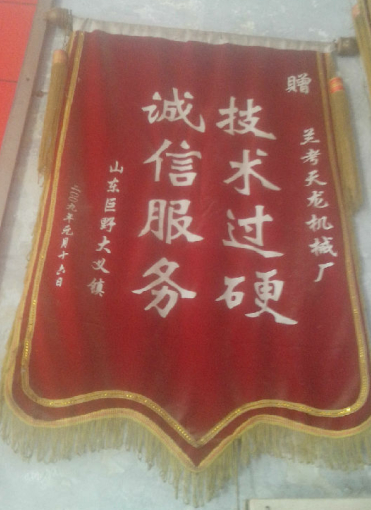 贈
兰考天龙机械厂
技术过硬
诚信服务
山东巨野大义镇
二〇〇九年元月十六日